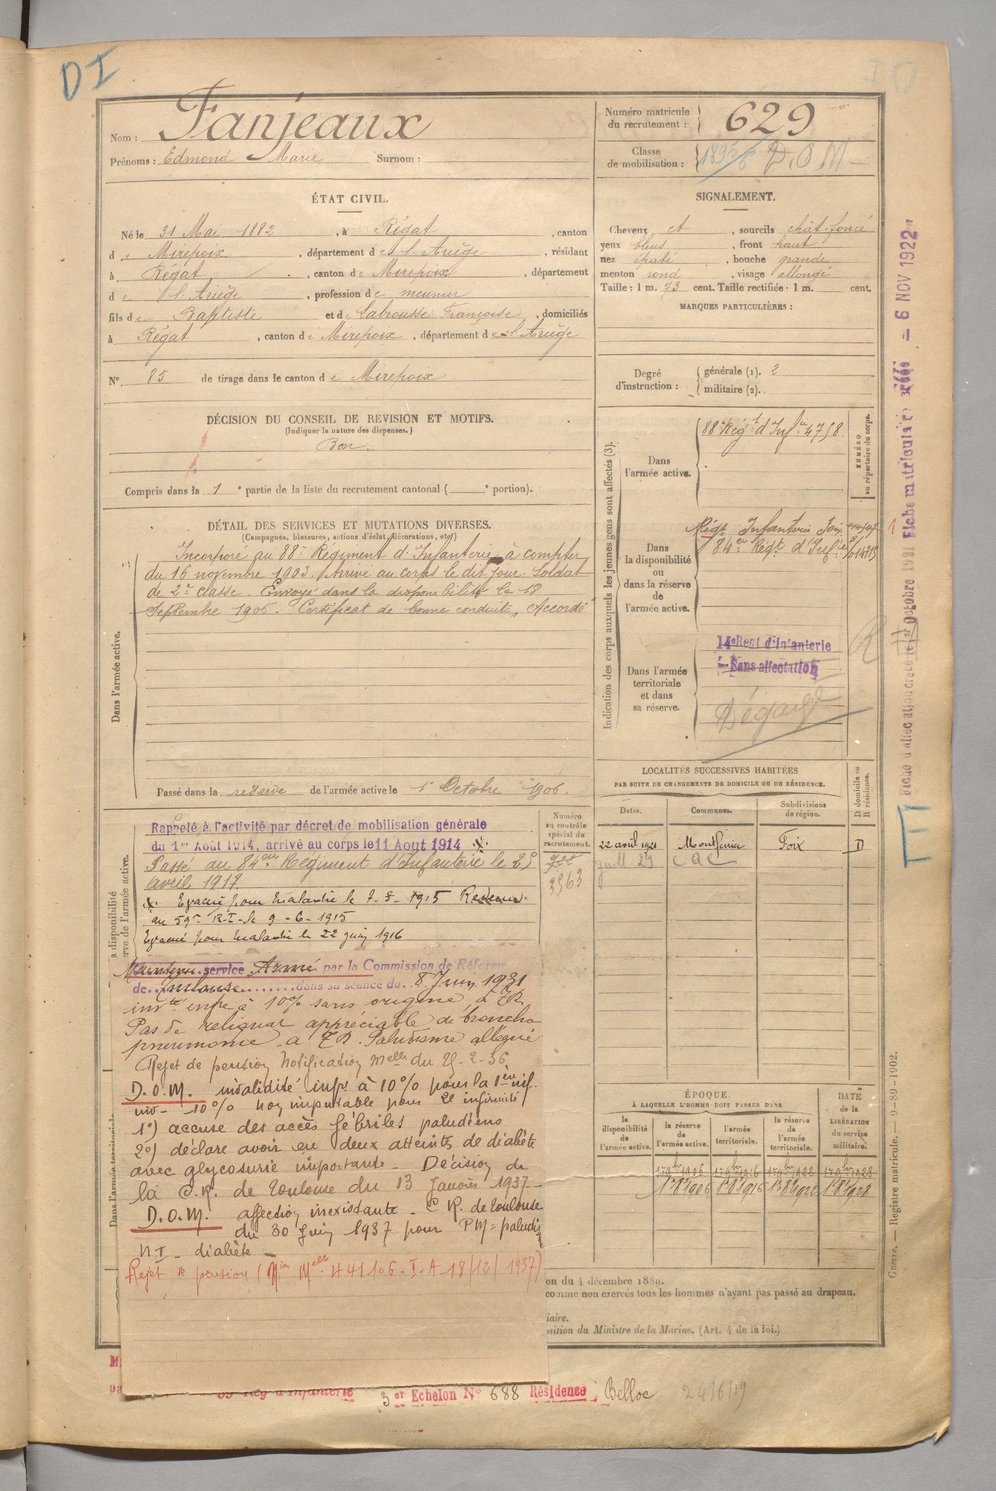 DI
Nom : Fanjeaux
Prénoms : Edmond Marie Surnom :
Numéro matricule du recrutement : 629
Classe de mobilisation : D.O.M
ÉTAT CIVIL.
Né le 31 Mai 1882, à Régat, canton
d e Mirepoix, département de l'Ariège, résidant
à Régat, canton de Mirepoix, département
d e l'Ariège, profession de meunier
fils de Baptiste et de Labrousse Françoise, domiciliés
à Régat, canton de Mirepoix, département de l'Ariège
N° 85 de tirage dans le canton d e Mirepoix
SIGNALEMENT.
Cheveux et, sourcils chât foncé
yeux bleus, front haut
nez épaté, bouche grande
menton rond, visage allongé
Taille : 1 m. 73 cent. Taille rectifiée : 1 m. cent.
MARQUES PARTICULIÈRES :
Degré d'instruction : générale (1). 2
militaire (2).
DÉCISION DU CONSEIL DE REVISION ET MOTIFS.
(Indiquer la nature des dispenses.)
Bon.
Compris dans la 1e partie de la liste du recrutement cantonal ( e portion).
DÉTAIL DES SERVICES ET MUTATIONS DIVERSES.
(Campagnes, blessures, actions d'éclat, décorations, etc.)
Dans l'armée active.
Incorporé au 88e Régiment d'Infanterie à compter
du 16 novembre 1903. Arrivé au corps le dit jour. Soldat
de 2e classe. Envoyé dans la disponibilité le 18
Septembre 1906. Certificat de bonne conduite "Accordé"
Passé dans la réserve de l'armée active le 1er Octobre 1906.
Indication des corps auxquels les jeunes gens sont affectés (3).
NUMÉRO au répertoire du corps.
Dans l'armée active.
88e Régt d'Infie 4758
Dans la disponibilité ou dans la réserve de l'armée active.
Régt Infanterie Foix
84eu Régt d'Infie
Dans l'armée territoriale et dans sa réserve.
14e Regt d'infanterie
Sans affectation
Dégagé
LOCALITÉS SUCCESSIVES HABITÉES
PAR SUITE DE CHANGEMENTS DE DOMICILE OU DE RÉSIDENCE.
Dates. Communes. Subdivisions de région. D domicile ou R résidence.
22 avril 1921 Montferrier Foix D
Numéro au contrôle spécial du recrutement.
3963
Rappelé à l'activité par décret de mobilisation générale
du 1er Août 1914, arrivé au corps le 11 Août 1914 x
Passé au 84eu Régiment d'Infanterie le 2
avril 1917.
x. Evacué pour maladie le 7-5-1915
au 59e R.I. le 9-6-1915
Evacué pour maladie le 22 juin 1916
Maintenu service Armé par la Commission de Réforme
de Toulouse dans sa séance du 8 Juin 1921
invté infre à 10% sans origine à E.R.
Pas de reliquat appréciable de broncho
pneumonie. à E.R. Paludisme allégué
Rejet de pension Notification Melle du 21-2-36
D.O.M. invalidité infre à 10% pour la 1ère inf.
inv - 10% non imputable pour 2e infirmité
1°) accuse des accès fébriles paludéens
2°) déclare avoir eu deux atteintes de diabète
avec glycosurie importante - Décision de
la C.R. de Toulouse du 13 Janvier 1937-
D.O.M. affection inexistante - C.R. de Toulouse
du 30 Juin 1937 pour
NI - diabète -
Rejet de pension (Min Melle H 41106-I.A 18/12/1937)
ÉPOQUE
À LAQUELLE L'HOMME DOIT PASSER DANS
la disponibilité de l'armée active. la réserve de l'armée active. l'armée territoriale. la réserve de l'armée territoriale. DATE de la LIBÉRATION du service militaire.
1er 8bre 1906 1er 8bre 1916 1er 8bre 1922 1er 8bre 1928
on du 4 décembre 1889.
comme non exercés tous les hommes n'ayant pas passé au drapeau.
iaire.
sition du Ministre de la Marine. (Art. 4 de la loi.)
59e Reg d'Infanterie 3er Echelon N° 688 Résidence : Belloc
Guerre. — Registre matricule. — 9-89-1902.
6 NOV 1922